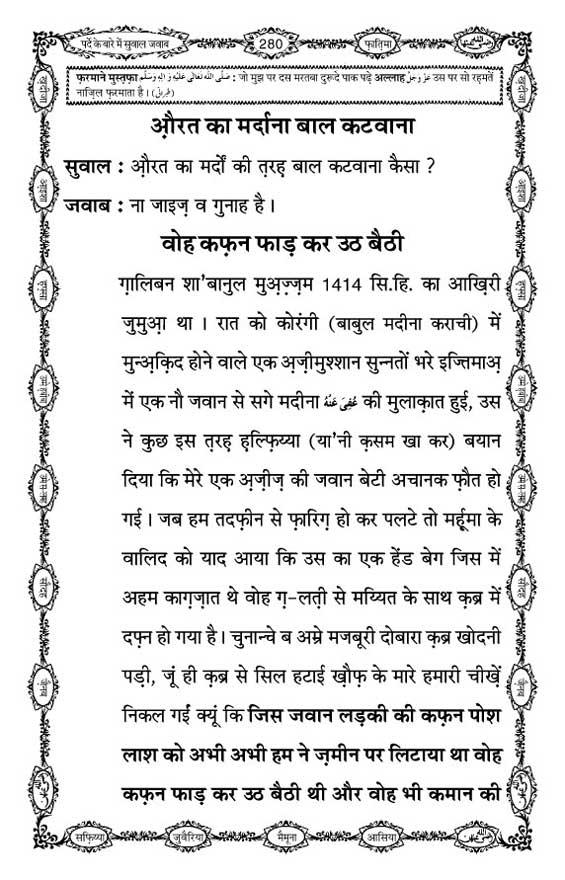 पर्दे के बारे में सुवाल जवाब
280
फ़ातिमा
फ़रमाने मुस्तफ़ा صَلَّى اللهُ تَعَالَى عَلَيْهِ وَاٰلِهٖ وَسَلَّم : जो मुझ पर दस मरतबा दुरूदे पाक पढ़े अल्लाह عَزَّوَجَلَّ उस पर सो रहमतें
नाज़िल फ़रमाता है । (طبرانی)
औ़रत का मर्दाना बाल कटवाना
सुवाल : औ़रत का मर्दों की त़रह़ बाल कटवाना कैसा ?
जवाब : ना जाइज़ व गुनाह है ।
वोह कफ़न फाड़ कर उठ बैठी
ग़ालिबन शा’बानुल मुअ़ज़्ज़म 1414 सि.हि. का आख़िरी
जुमुआ़ था । रात को कोरंगी (बाबुल मदीना कराची) में
मुन्अ़क़िद होने वाले एक अ़ज़ीमुश्शान सुन्नतों भरे इज्तिमाअ़
में एक नौ जवान से सगे मदीना عُفِيَ عَنْهُ की मुलाक़ात हुई, उस
ने कुछ इस त़रह़ ह़ल्फ़िय्या (या’नी क़सम खा कर) बयान
दिया कि मेरे एक अ़ज़ीज़ की जवान बेटी अचानक फ़ौत हो
गई । जब हम तदफ़ीन से फ़ारिग़ हो कर पलटे तो मर्हूमा के
वालिद को याद आया कि उस का एक हेंड बेग जिस में
अहम काग़ज़ात थे वोह ग़-लत़ी से मय्यित के साथ क़ब्र में
दफ़्न हो गया है । चुनान्चे ब अम्रे मजबूरी दोबारा क़ब्र खोदनी
पड़ी, जूं ही क़ब्र से सिल हटाई ख़ौफ़ के मारे हमारी चीख़ें
निकल गईं क्यूं कि जिस जवान लड़की की कफ़न पोश
लाश को अभी अभी हम ने ज़मीन पर लिटाया था वोह
कफ़न फाड़ कर उठ बैठी थी और वोह भी कमान की
सफ़िय्या
जुवैरिया
मैमूना
आसिया